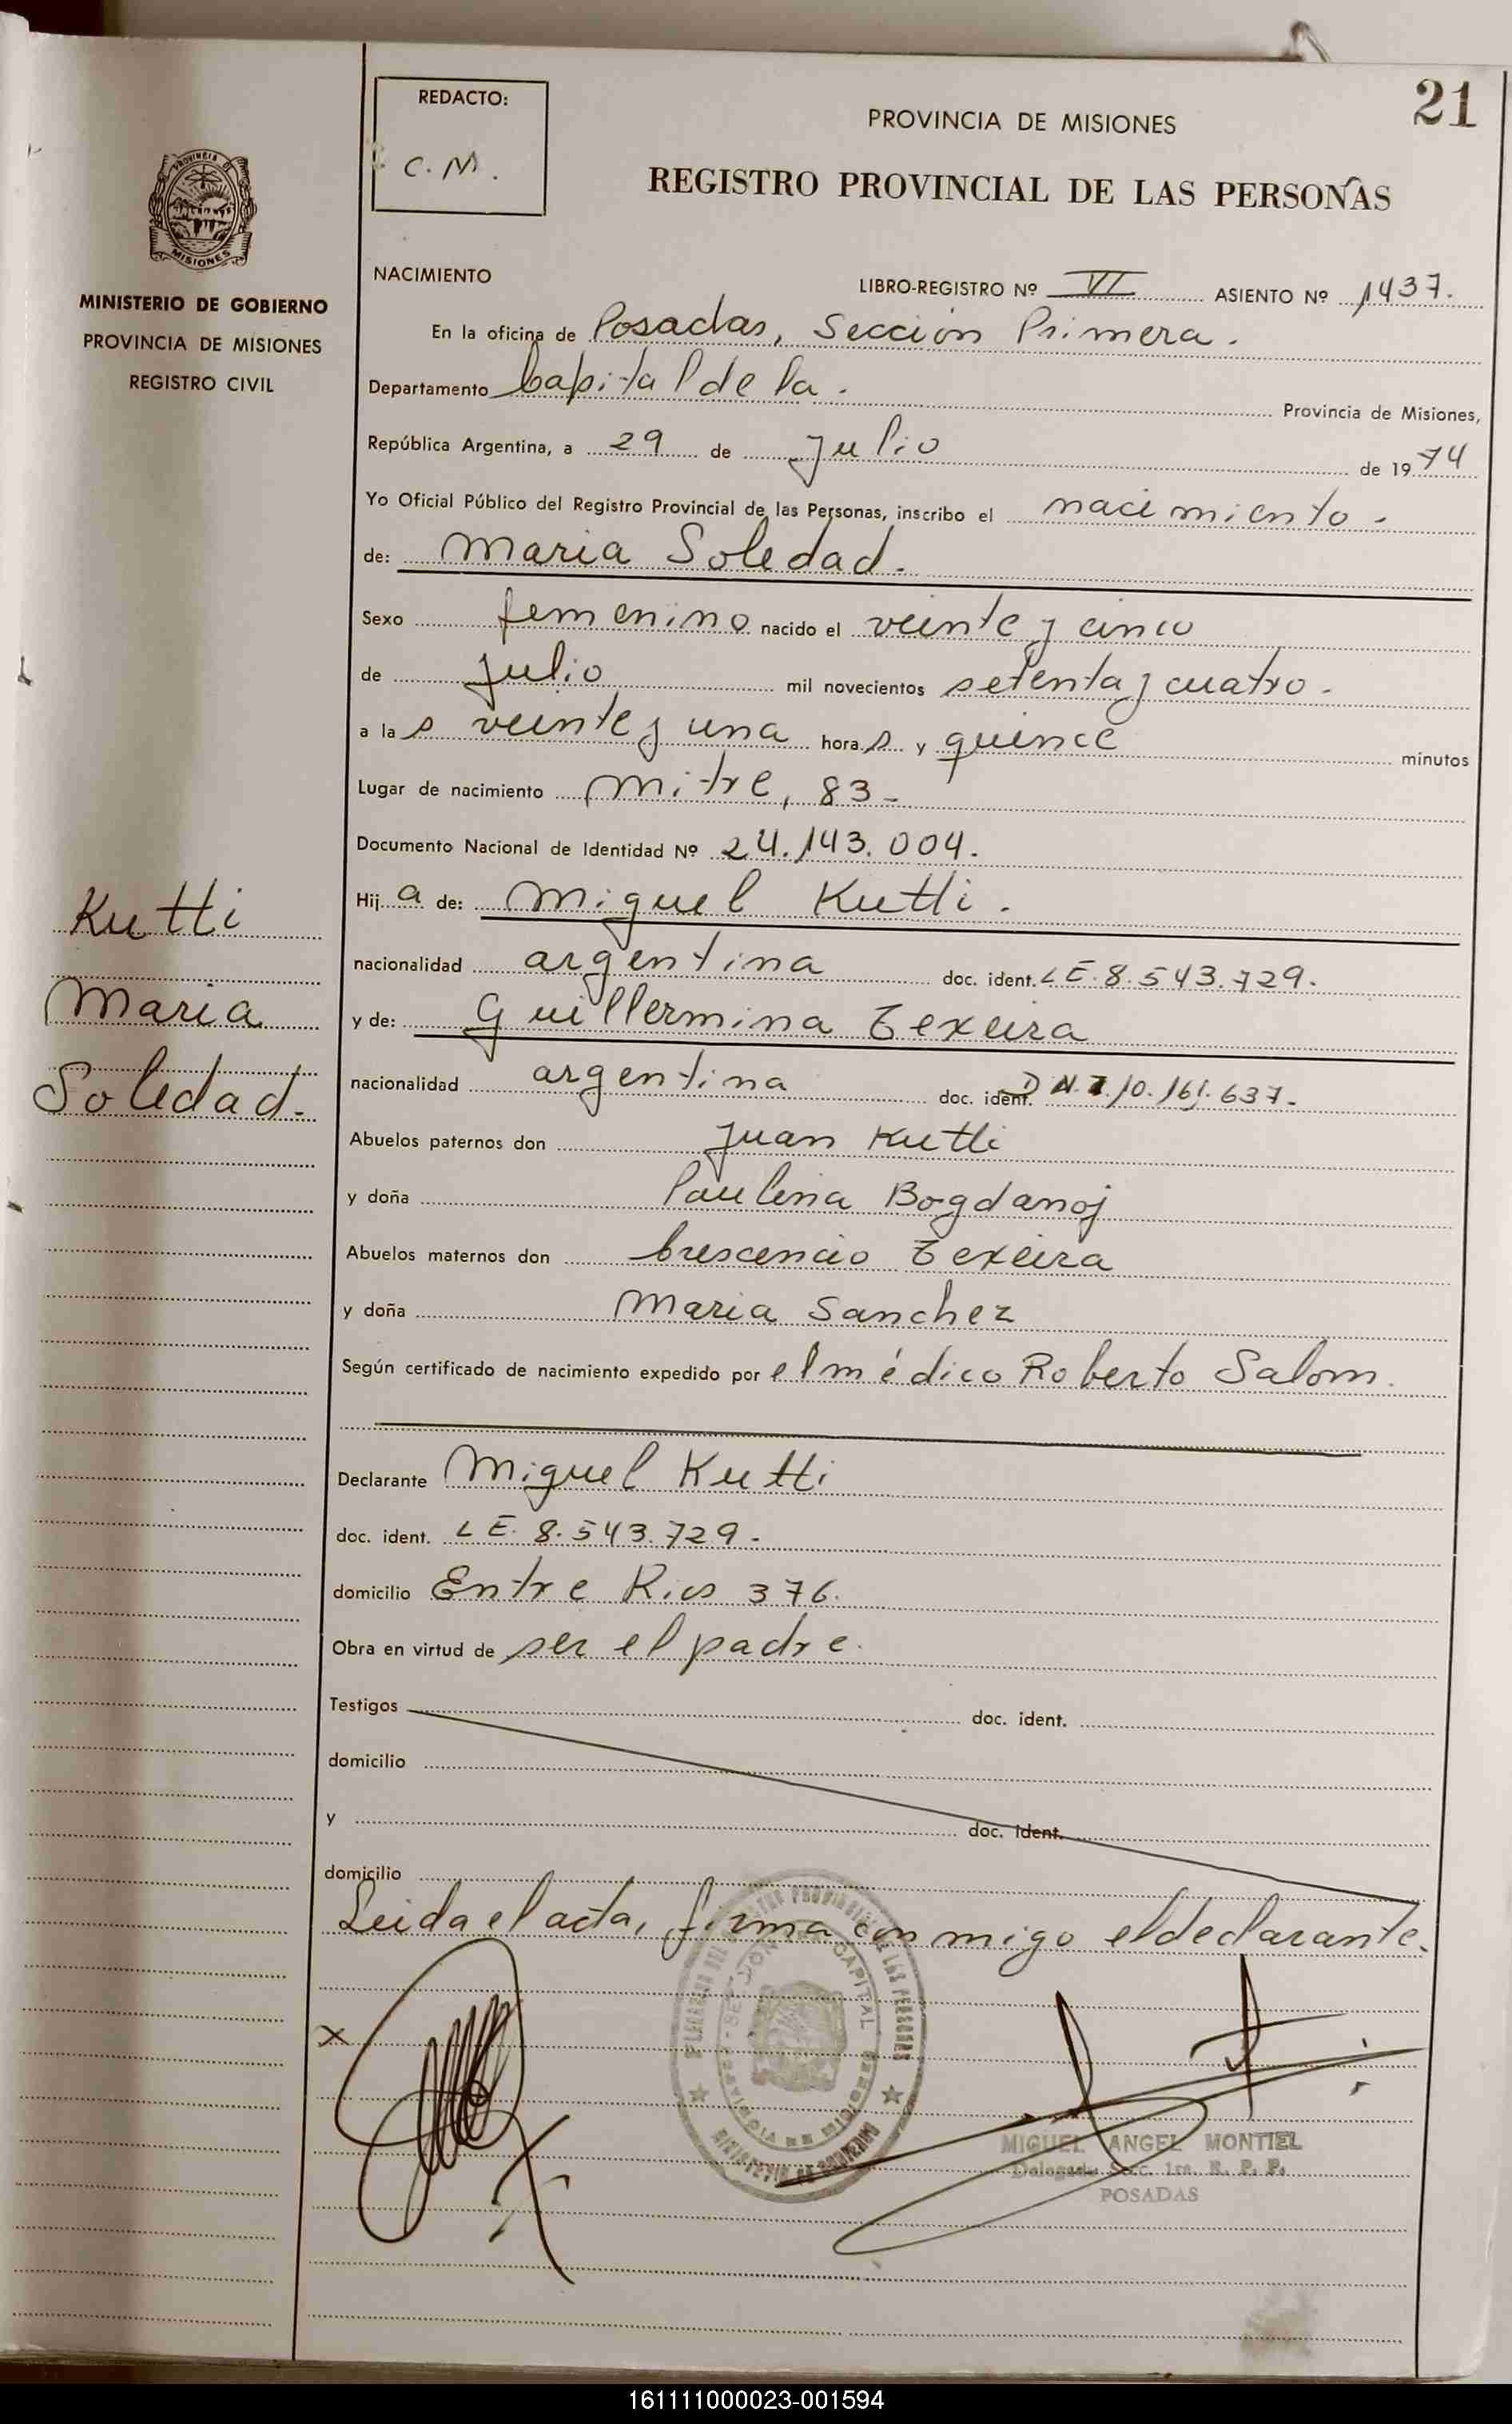 21
REDACTO:
C.M.
PROVINCIA DE MISIONES
REGISTRO PROVINCIAL DE LAS PERSONAS
MISIONES
MINISTERIO DE GOBIERNO
PROVINCIA DE MISIONES
REGISTRO CIVIL
NACIMIENTO
LIBRO-REGISTRO Nº VI ASIENTO Nº 1437.
En la oficina de Posadas, Sección Primera.
Departamento Capital de la. Provincia de Misiones,
República Argentina, a 29 de Julio de 1974
Yo Oficial Público del Registro Provincial de las Personas, inscribo el nacimiento.
de: Maria Soledad.
Sexo femenino nacido el veinte y cinco
de Julio mil novecientos setenta y cuatro.
a las veinte y una horas y quince minutos
Lugar de nacimiento Mitre, 83-
Documento Nacional de Identidad Nº 24.143.004.
Hija de: Miguel Kutti.
nacionalidad argentina doc. ident. LE. 8.543.729.
y de: Guillermina Texeira
nacionalidad argentina doc. ident. D.N.I. 10.161.637.
Abuelos paternos don Juan Kutti
y doña Paulina Bogdanoj
Abuelos maternos don Crescencio Texeira
y doña Maria Sanchez
Según certificado de nacimiento expedido por el médico Roberto Salom.
Declarante Miguel Kutti
doc. ident. LE. 8.543.729.
domicilio Entre Rios 376.
Obra en virtud de ser el padre.
Testigos doc. ident.
domicilio
y doc. ident.
domicilio
Leida el acta, firma conmigo el declarante.
Kutti
Maria
Soledad.
x
CAPITAL
MIGUEL ANGEL MONTIEL
Delegado Secc. 1ra. R. P. P.
POSADAS
161111000023-001594